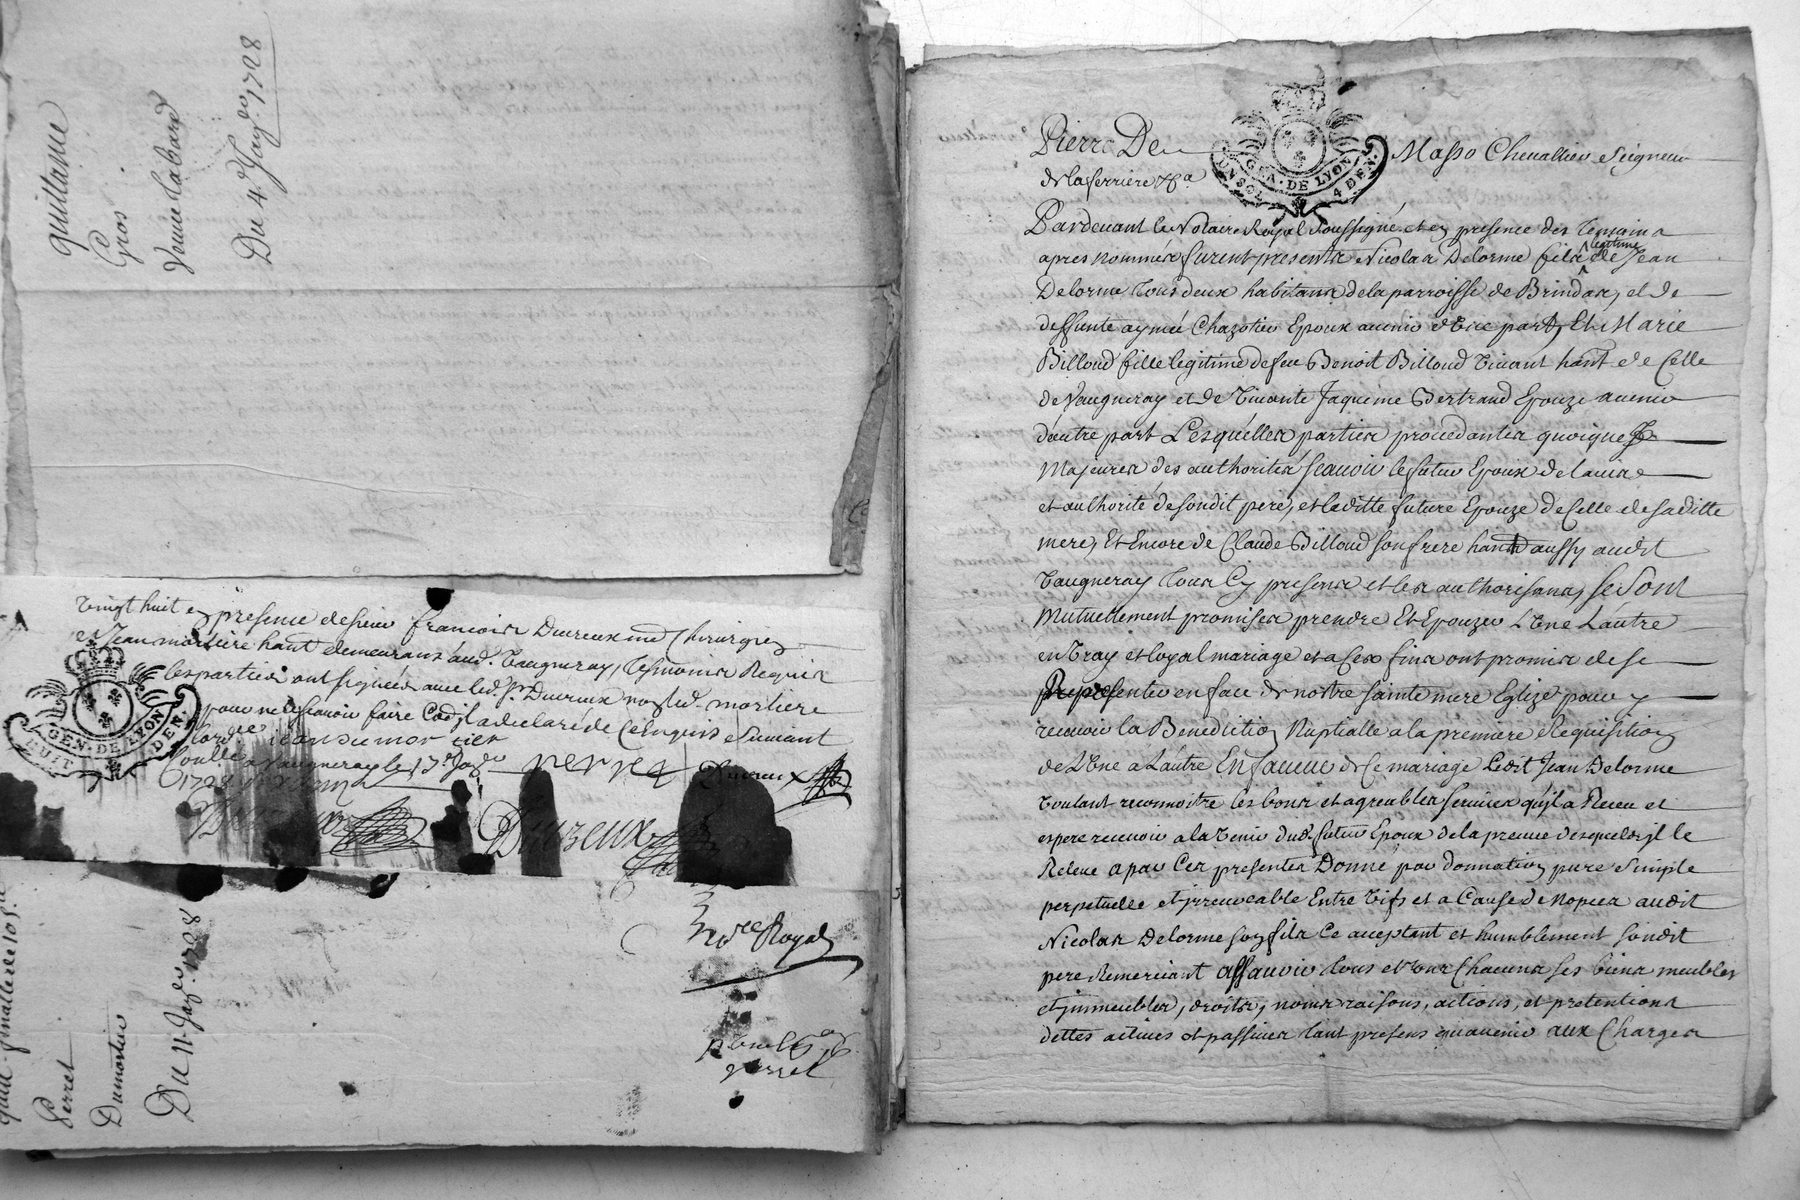 quittance
Gros
Veuve Labard
Du 4e Janv.er 1728
vingt huit en presence de sieur francois Ducreux me Chirurgien
et Jean mortiere hant demeurans aud. Vaugneray, tesmoins Requis
les parties ont signées avec led. sr. Ducreux non led. mortiere
pour ne sçavoir faire Ce qu'il a declaré de Ce Enquis et suivant
lordce jean du mor tier
Controllé a Vaugneray le 13e Janv.er perret Ducreux
1728
GEN. DE LYON
HUIT DEN.
Ducreux
Nore Royal
perret
Perret
Dumortier
Du 11e Janv.er 1728
Pierre De Masso Chevallier Seigneur
GEN. DE LYON
UN SOL 4 DEN.
de la ferriere &a
Pardevant le Notaire Royal soussigné et en presence des temoins
apres nommés furent presents Nicolas Delorme fils legitime de Jean
Delorme tous deux habitans de la parroisse de Brindas, et de
deffunte aymée Chazotier Epoux avenir d'Une part, Et Marie
Billoud fille legitime de feu Benoit Billoud vivant hant de Celle
de Vaugneray et de vivante Jaqueme Bertrand Epouze avenir
d'autre part Lesquelles parties procedantes quoique
Majeures des authorités sçavoir le futur Epoux de laving
et authorité de sondit pere, et laditte future Epouze de Celle de saditte
mere, Et Encore de Claude Billoud son frere hant aussy audit
Vaugneray tous Cy presens et les authorisans, se sont
Mutuellement promises prendre Et Epouzer L'Une L'autre
en vray et loyal mariage et a Ces fins ont promis de se
Presenter en face de nostre sainte mere Eglize pour y
recevoir la Benediction Nuptialle a la premiere Requisition
de L'Une a L'autre En faveur de Ce mariage Ledit Jean Delorme
voulant reconnoitre les bons et agreables services qu'il a Receu et
espere recevoir a lavenir dud. futur Epoux de la preuve desquels il le
Releve a par Ces presentes Donné par donnation pure simple
perpetuelle et jrrevocable Entre vifs et a Cause de Nopces audit
Nicolas Delorme son fils Ce acceptant et humblement sondit
pere Remerciant assavoir tous et Uns Chacuns ses biens meubles
et jmmeubles, droits, noms raisons, actions, et pretentions
dettes actives et passives tant presens qu'avenir aux Charges